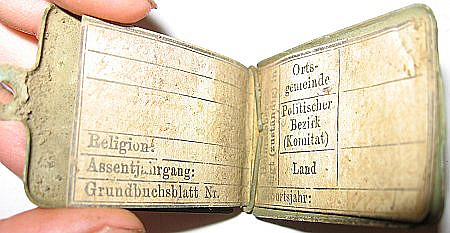 Religion:
Assentjahrgang:
Grundbuchsblatt Nr.
(zuständig)
Orts-
gemeinde
Politischer
Bezirk
(Komitat)
Land
urtsjahr: